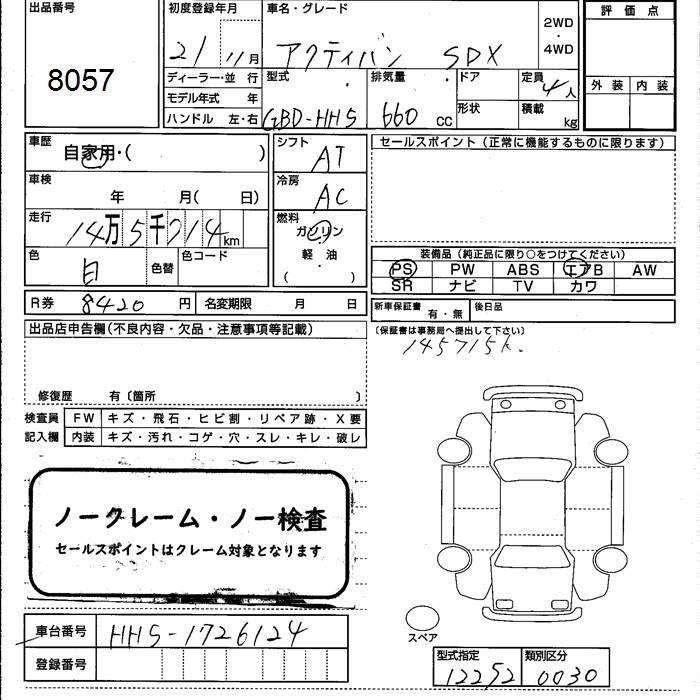 出品番号
8057
初度登録年月
21 11月
車名・グレード
アクティバン SDX
2WD
・
4WD
評価点
外装 内装
ディーラー・並 行
モデル年式 年
ハンドル 左・右
型式
GBD-HH5
排気量
660 CC
ドア
形状
定員
4人
積載
kg
車歴
自家用・( )
車検
年 月( 日)
走行
14万5千714km
色
白
色替
色コード
シフト
AT
冷房
AC
燃料
ガソリン
軽・油
( )
セールスポイント (正常に機能するものに限ります)
装備品 (純正品に限り○をつけてください)
PS PW ABS エアB AW
SR ナビ TV カワ
R券 8420 円
名変期限 月 日
新車保証書 有・無
後日品
(保証書は事務局へ提出して下さい)
145715k.
出品店申告欄(不良内容・欠品・注意事項等記載)
修復歴 有〔箇所 〕
検査員
記入欄
FW キズ・飛石・ヒビ割・リペア跡・X要
内装 キズ・汚れ・コゲ・穴・スレ・キレ・破レ
ノークレーム・ノー検査
セールスポイントはクレーム対象となります
スペア
車台番号 HH5-1726124
登録番号
型式指定
12252
類別区分
0030